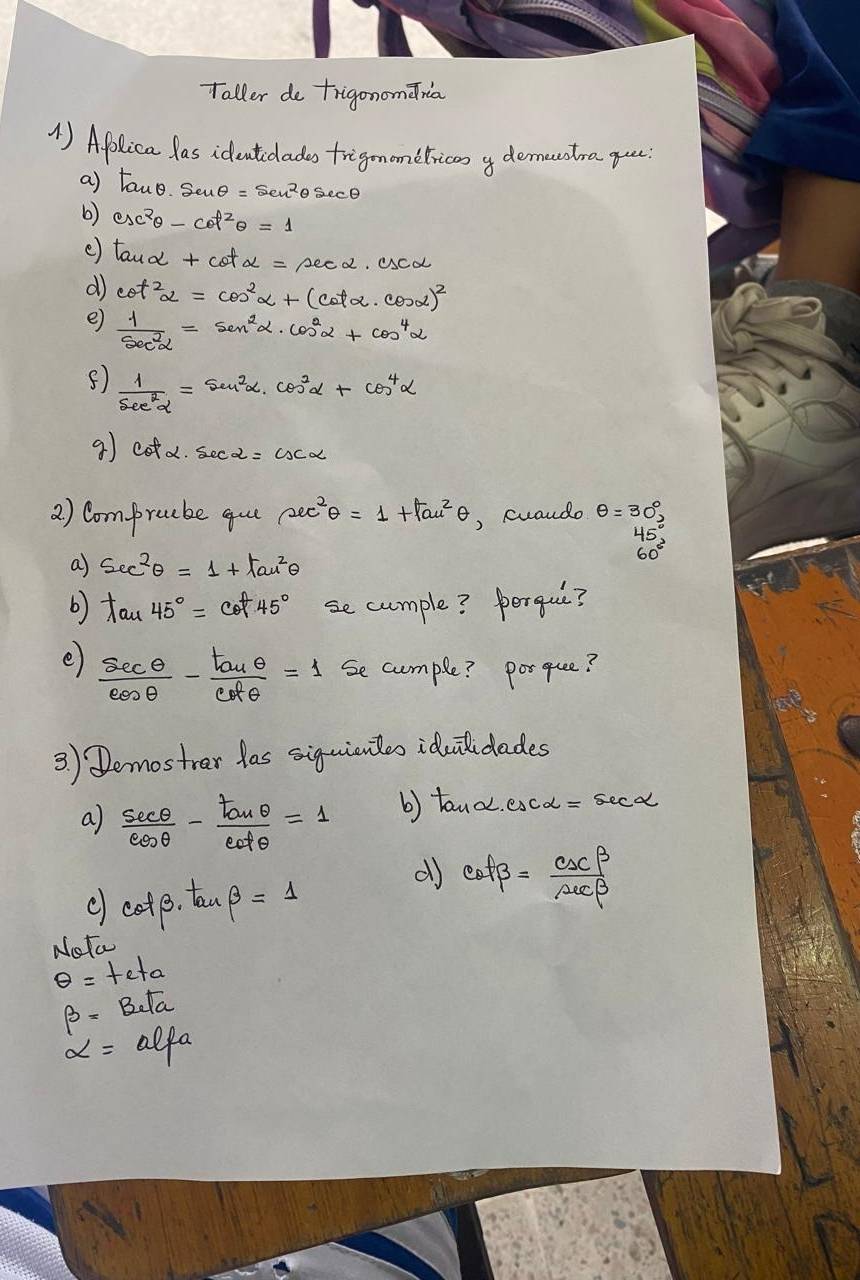 Taller de trigonometría
1) Aplica las identidades trigonométricas y demuestra que:
a) tan θ . Sen θ = Sen²θ Sec θ
b) csc²θ - cot²θ = 1
c) tan α + cot α = sec α . csc α
d) cot²α = cos²α + (cot α . cos α)²
e) 1/Sec²α = sen²α . cos²α + cos⁴α
f) 1/Sec²α = Sen²α . cos²α + cos⁴α
g) cot α . Sec α = csc α
2) Compruebe que sec²θ = 1 + tan²θ, cuando θ = 30°,
45°,
60°
a) Sec²θ = 1 + tan²θ
b) tan 45° = cot 45° se cumple? porqué?
c) Sec θ/cos θ - tan θ/cot θ = 1 Se cumple? por que?
3.) Demostrar las siguientes identidades
a) Sec θ/cos θ - tan θ/cot θ = 1 b) tan α . csc α = sec α
c) cot β . tan β = 1 d) cot β = csc β/sec β
Nota
θ = teta
β = Beta
α = alfa